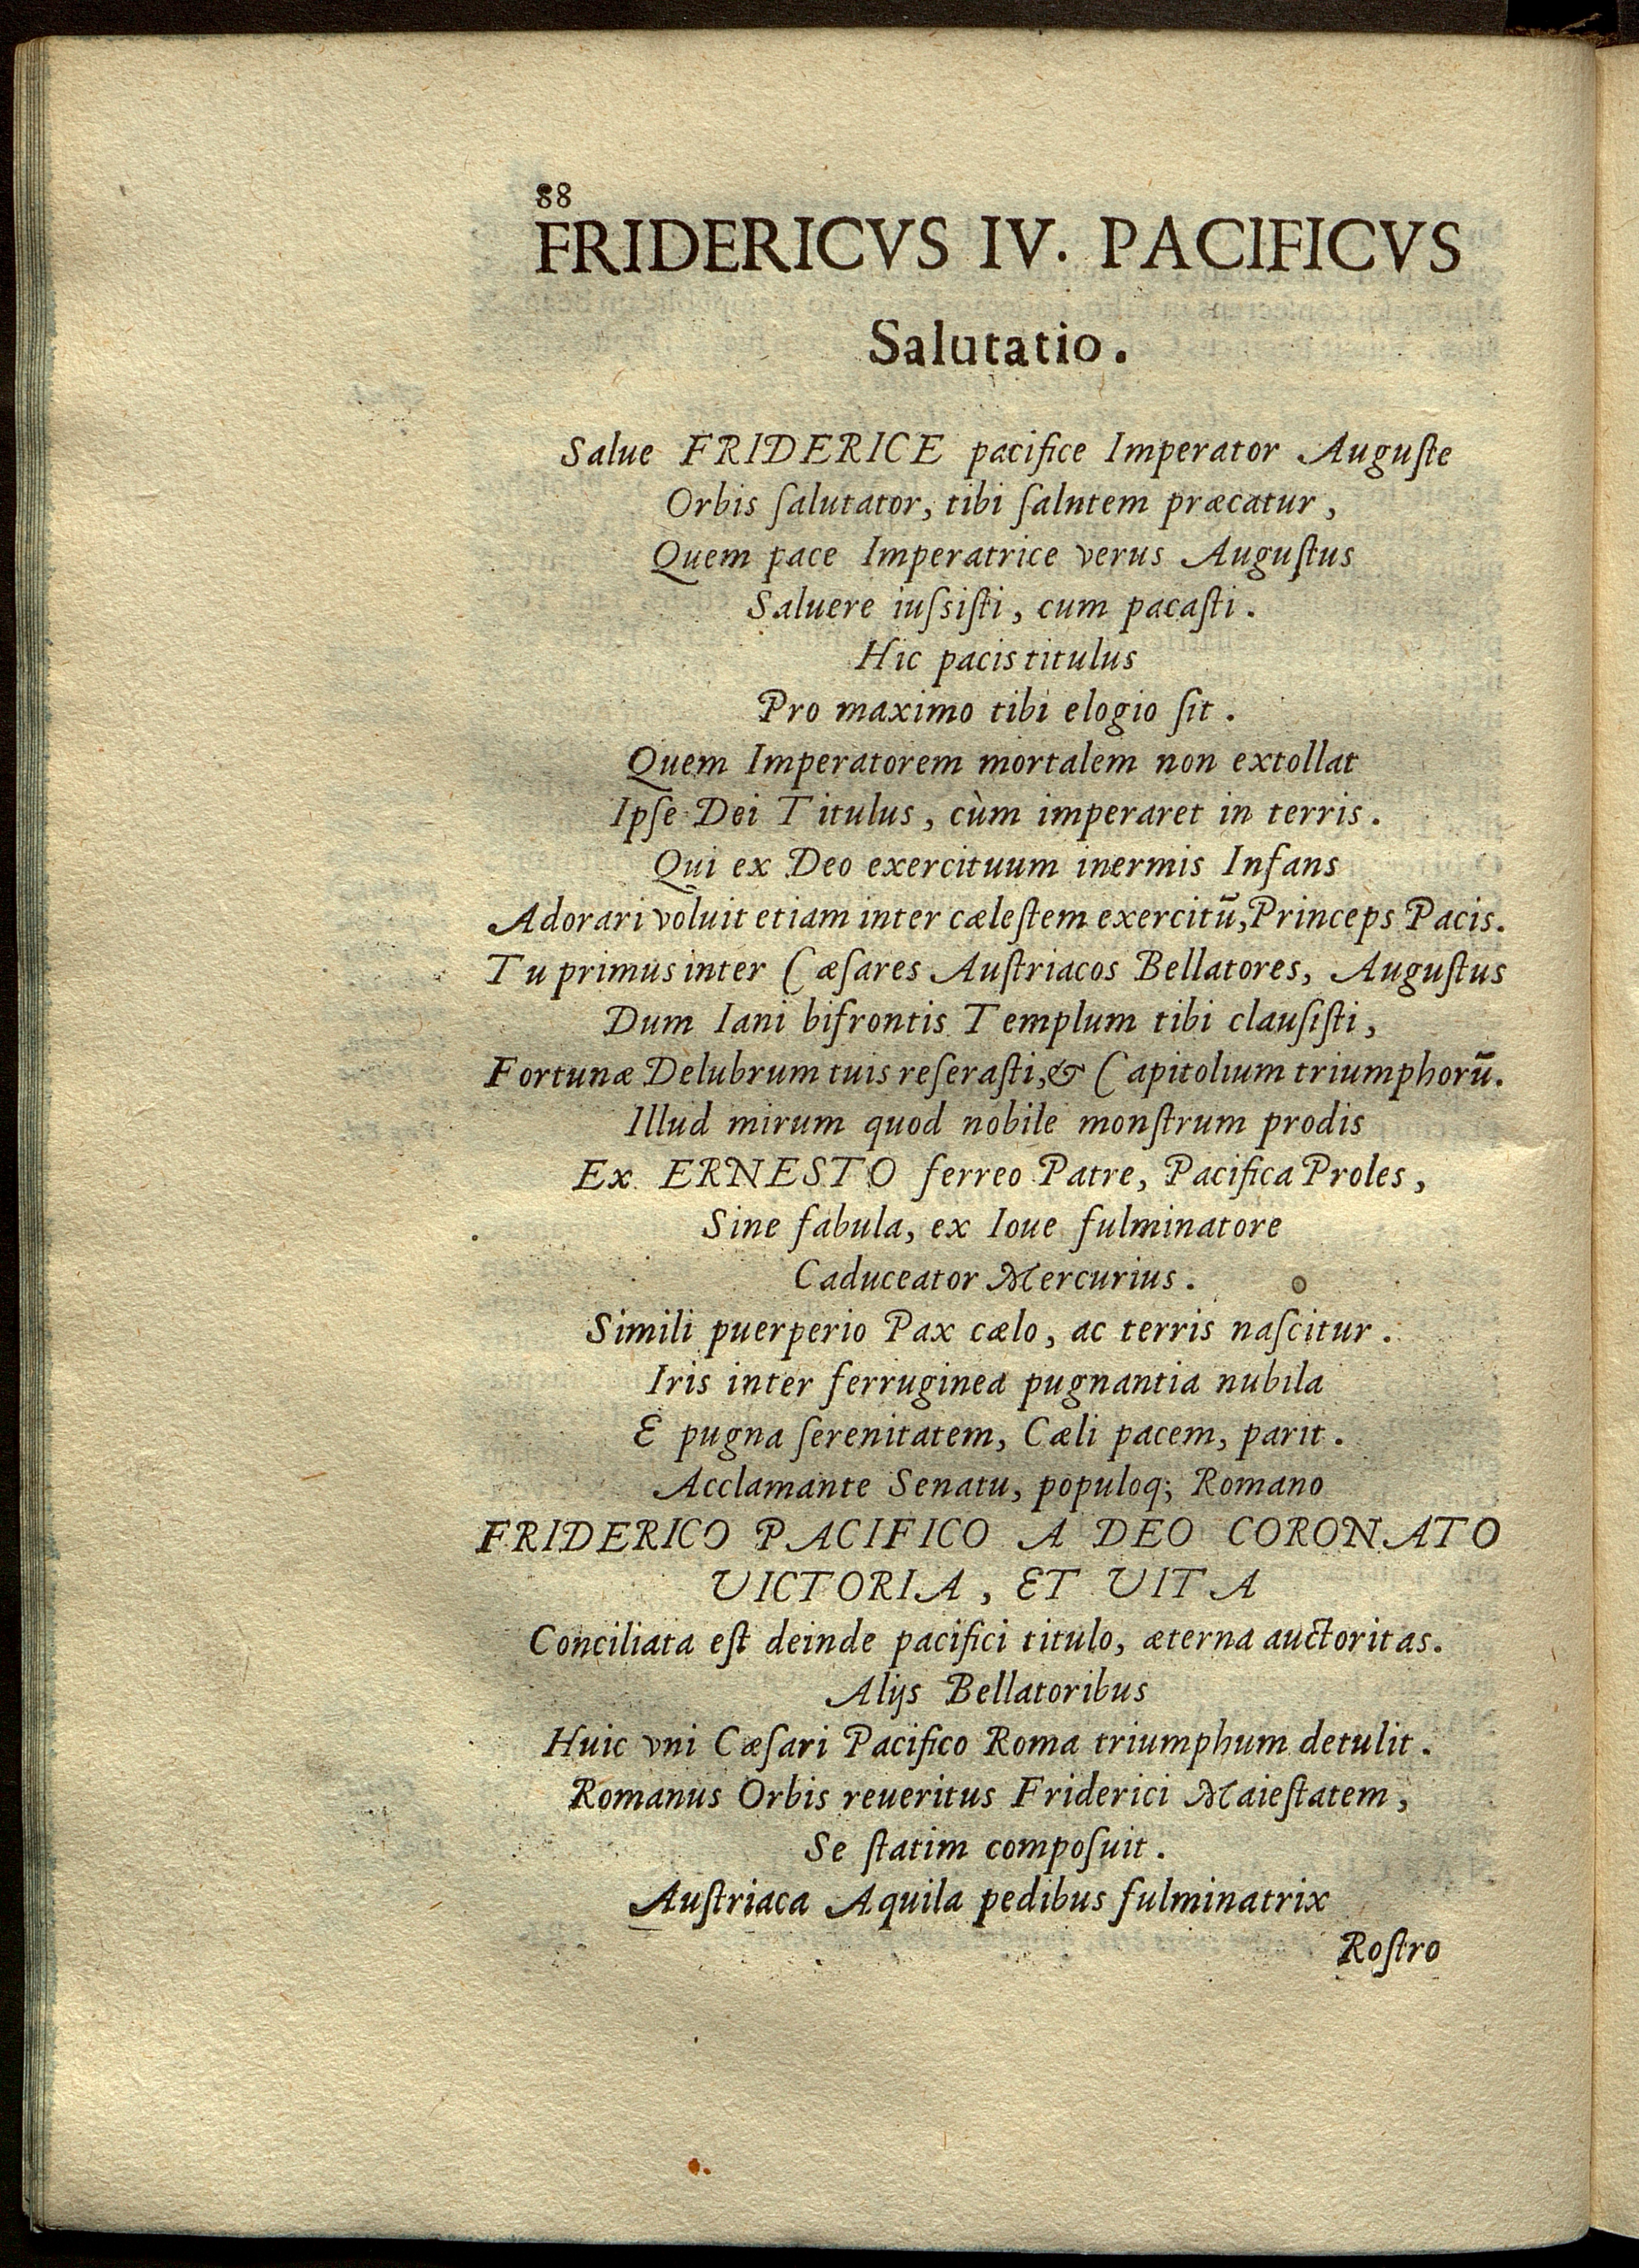 88
FRIDERICVS IV. PACIFICVS
Salutatio.
Salue FRIDERICE pacifice Imperator Auguſte
Orbis ſalutator, tibi ſalntem præcatur,
Quem pace Imperatrice verus Auguſtus
Saluere iuſsiſti, cum pacaſti.
Hic pacis titulus
Pro maximo tibi elogio ſit.
Quem Imperatorem mortalem non extollat
Ipſe Dei Titulus, cùm imperaret in terris.
Qui ex Deo exercituum inermis Infans
Adorari voluit etiam inter cæleſtem exercitū, Princeps Pacis.
Tu primus inter Cæſares Auſtriacos Bellatores, Auguſtus
Dum Iani bifrontis Templum tibi clauſiſti,
Fortunæ Delubrum tuis reſeraſti, & Capitolium triumphorū.
Illud mirum quod nobile monſtrum prodis
Ex ERNESTO ferreo Patre, Pacifica Proles,
Sine fabula, ex Ioue fulminatore
Caduceator Mercurius.
Simili puerperio Pax cælo, ac terris naſcitur.
Iris inter ferruginea pugnantia nubila
E pugna ſerenitatem, Cæli pacem, parit.
Acclamante Senatu, populoq; Romano
FRIDERICO PACIFICO A DEO CORONATO
VICTORIA, ET VITA
Conciliata eſt deinde pacifici titulo, æterna auctoritas.
Alijs Bellatoribus
Huic vni Cæſari Pacifico Roma triumphum detulit.
Romanus Orbis reueritus Friderici Maieſtatem,
Se ſtatim compoſuit.
Auſtriaca Aquila pedibus fulminatrix
Roſtro